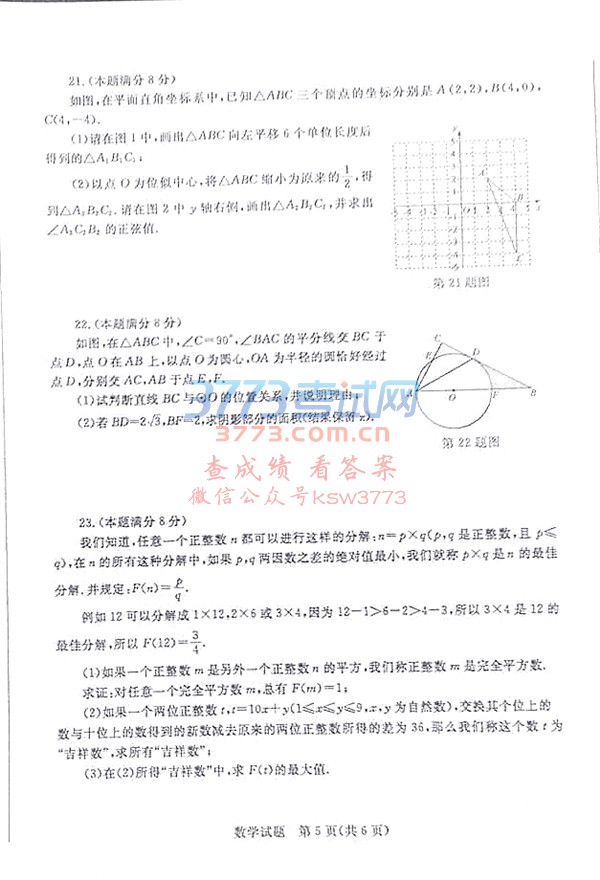 21.(本题满分8分)
如图,在平面直角坐标系中,已知△ABC 三个顶点的坐标分别是 A(2,2),B(4,0),
C(4,-4).
(1)请在图1中,画出△ABC 向左平移6个单位长度后
得到的△A₁B₁C₁;
(2)以点 O 为位似中心,将△ABC 缩小为原来的1/2,得
到△A₂B₂C₂.请在图2中 y 轴右侧,画出△A₂B₂C₂,并求出
∠A₂C₂B₂ 的正弦值.
第21题图
22.(本题满分8分)
如图,在△ABC 中,∠C=90°,∠BAC 的平分线交 BC 于
点D,点O在AB上,以点O为圆心,OA为半径的圆恰好经过
点D,分别交AC,AB于点E,F.
(1)试判断直线 BC 与⊙O 的位置关系,并说明理由;
(2)若 BD=2√3,BF=2,求阴影部分的面积(结果保留π).
C
E
D
A
O
F
B
第22题图
3773考试网
3773.com.cn
查成绩 看答案
微信公众号ksw3773
23.(本题满分8分)
我们知道,任意一个正整数 n 都可以进行这样的分解:n=p×q(p,q 是正整数,且 p≤
q),在 n 的所有这种分解中,如果 p,q 两因数之差的绝对值最小,我们就称 p×q 是 n 的最佳
分解.并规定:F(n)=p/q.
例如12可以分解成1×12,2×6或3×4,因为12-1>6-2>4-3,所以3×4是12的
最佳分解,所以 F(12)=3/4.
(1)如果一个正整数 m 是另外一个正整数 n 的平方,我们称正整数 m 是完全平方数.
求证:对任意一个完全平方数 m,总有 F(m)=1;
(2)如果一个两位正整数 t,t=10x+y(1≤x≤y≤9,x,y 为自然数),交换其个位上的
数与十位上的数得到的新数减去原来的两位正整数所得的差为36,那么我们称这个数 t 为
“吉祥数”,求所有“吉祥数”;
(3)在(2)所得“吉祥数”中,求 F(t)的最大值.
数学试题 第5页(共6页)